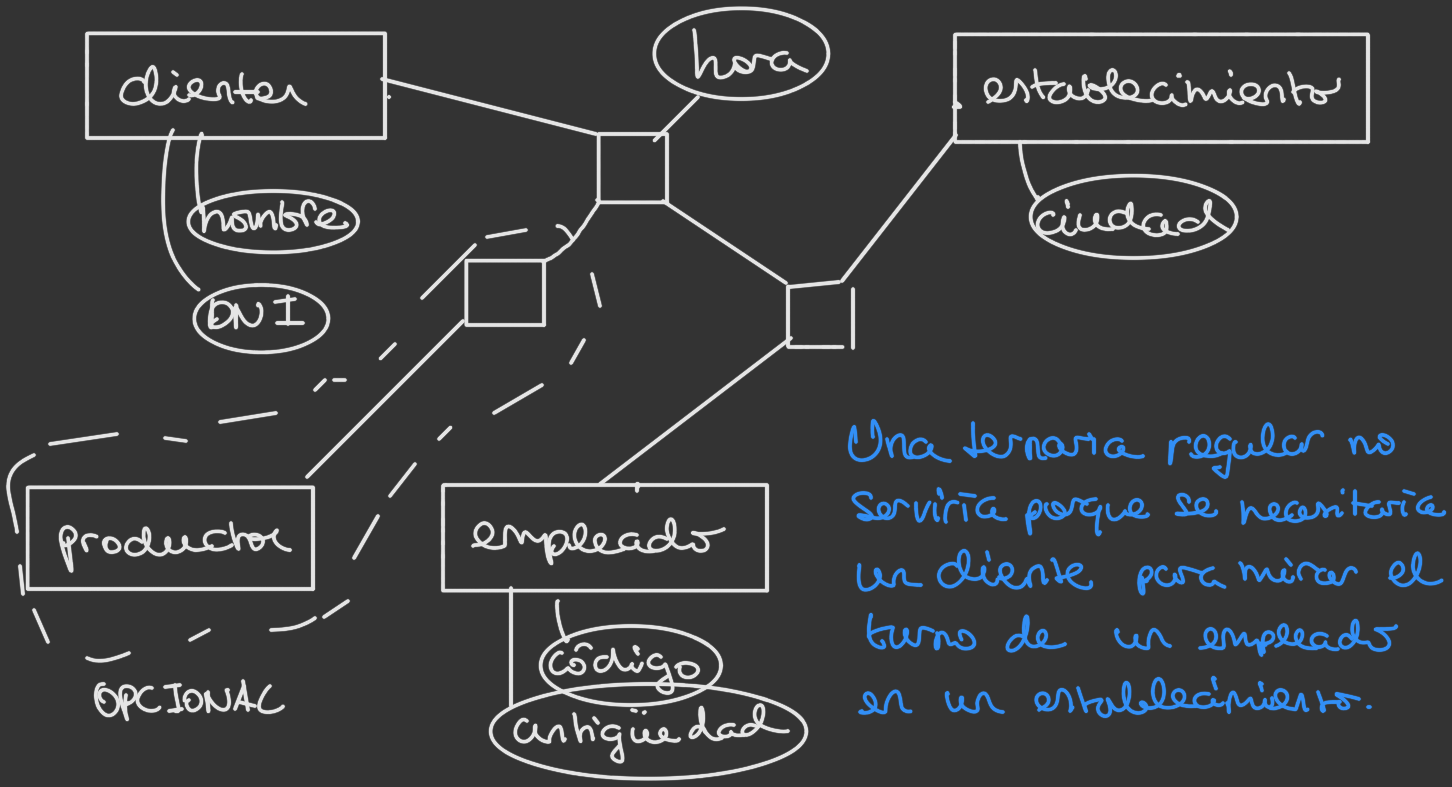 clientes
hora
establecimiento
nombre
ciudad
DNI
productos
empleado
OPCIONAL
código
antigüedad
Una ternaria regular no
serviría porque se necesitaría
un cliente para mirar el
turno de un empleado
en un establecimiento.